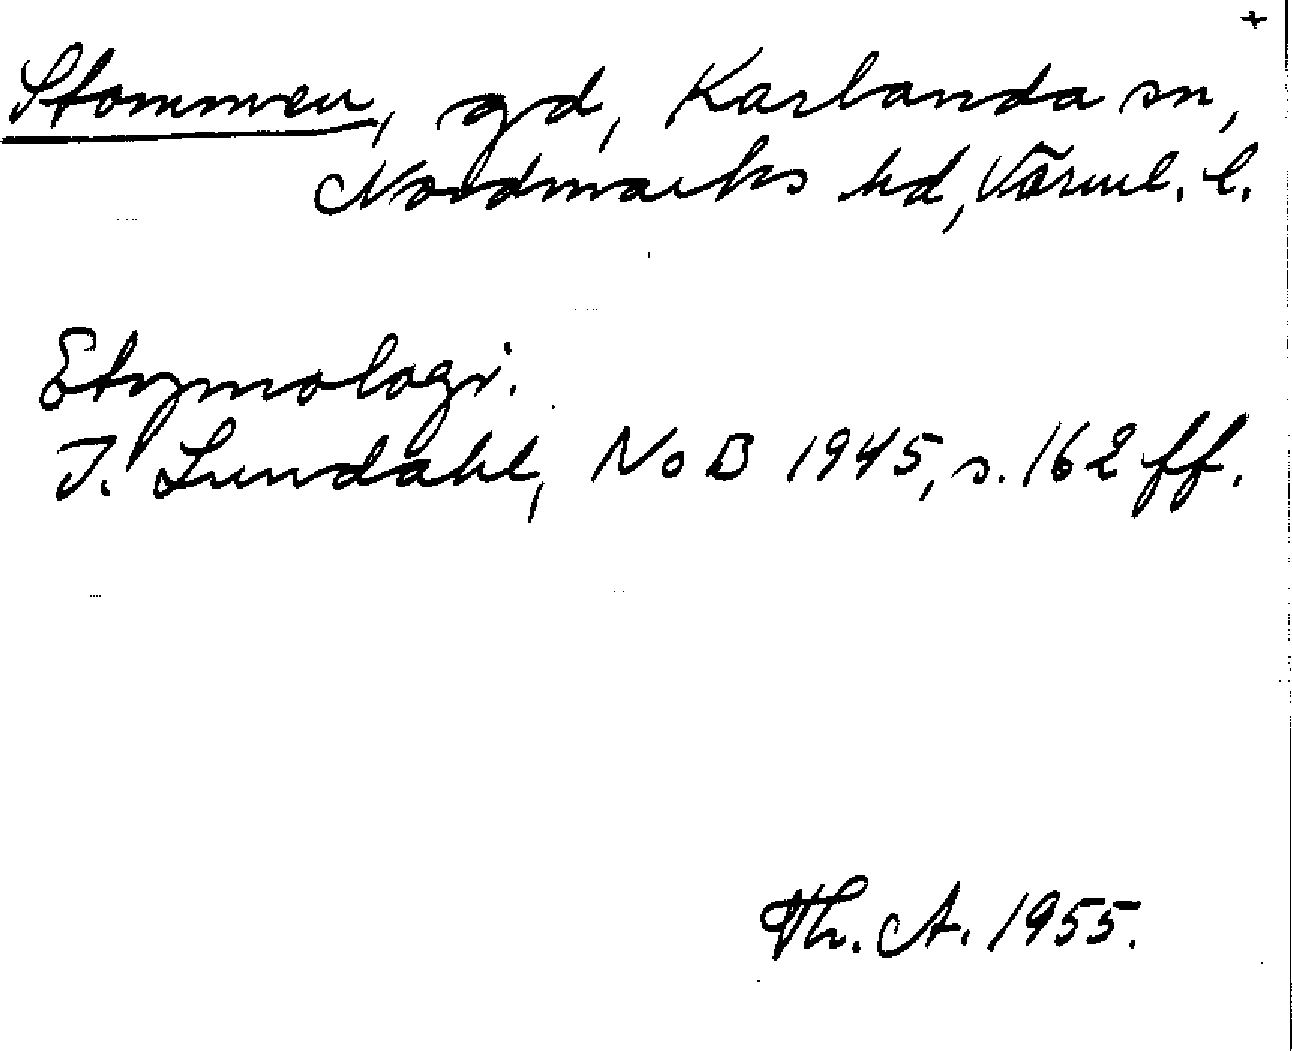 +
Stommen, gd, Karlanda sn,
Nordmarks hd, Värml. l.
Etymologi.
I. Lundahl, NoB 1945, s. 162 ff.
Th. A. 1955.